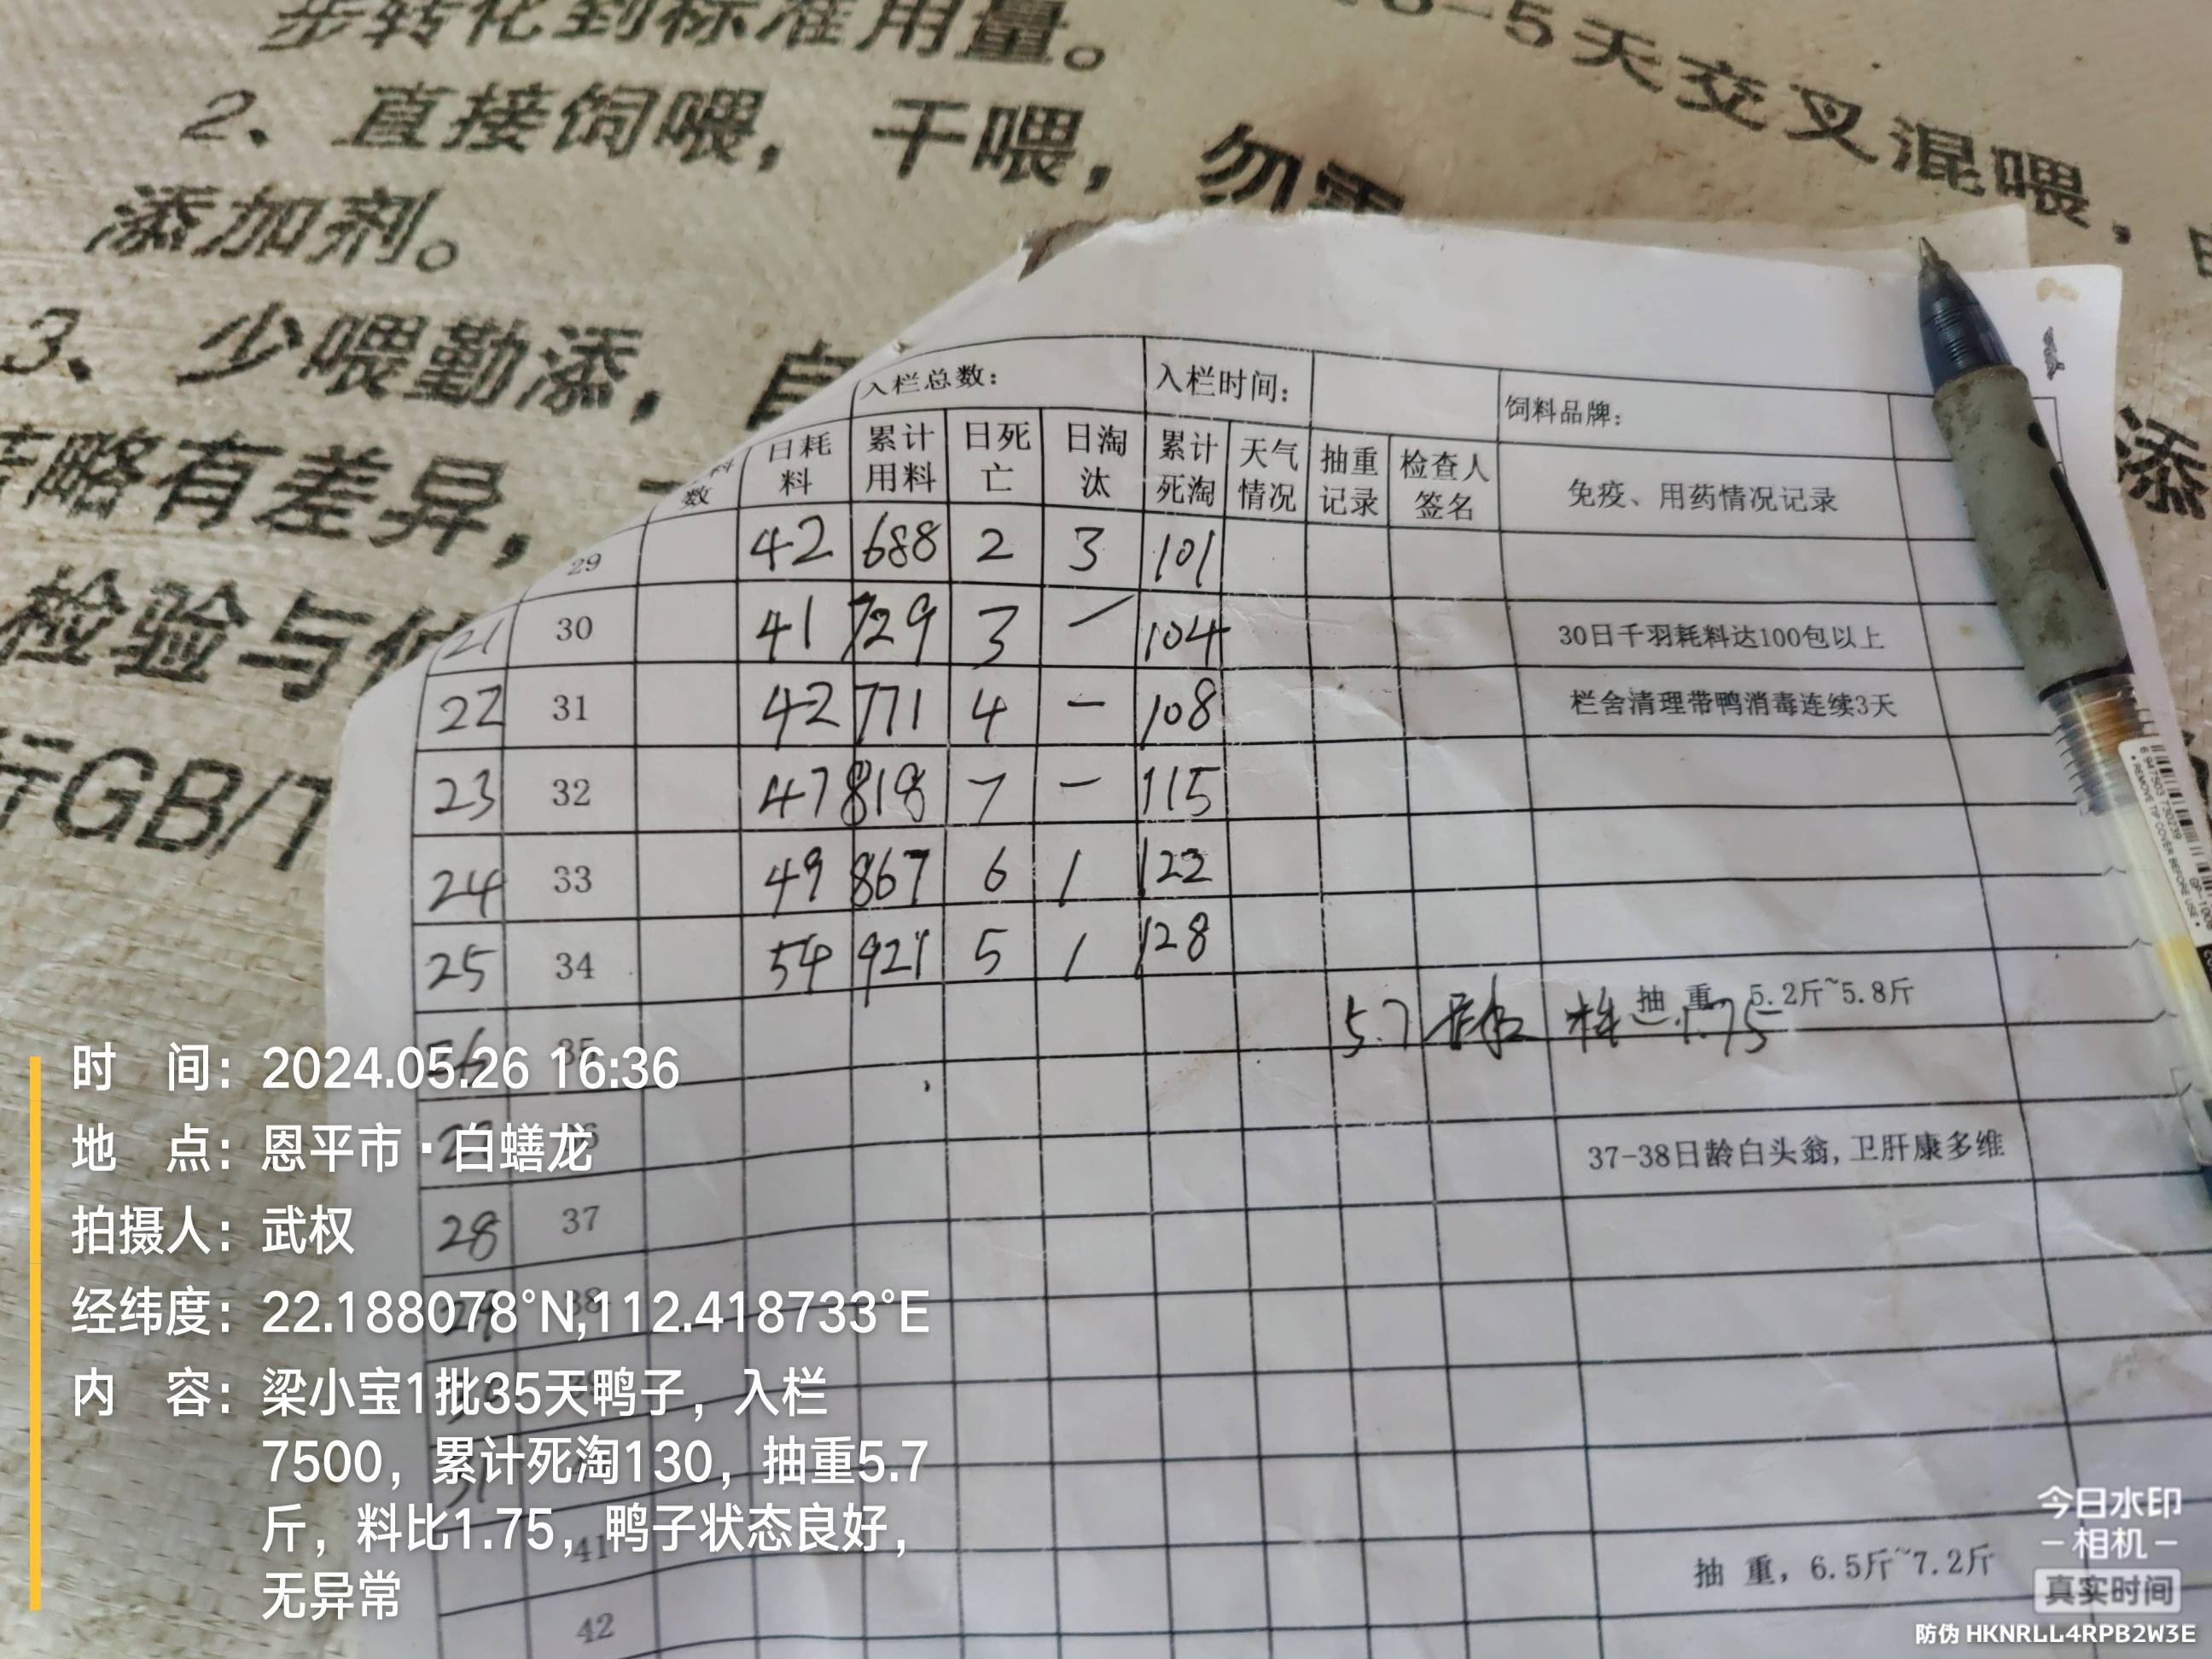 步转化到标准用量。
5天交叉混喂，
2、直接饲喂，干喂，勿需
添加剂。
3、少喂勤添，自
略有差异，
检验与
标GB/T
添
入栏总数： 入栏时间： 饲料品牌：
料数 日耗料 累计用料 日死亡 日淘汰 累计死淘 天气情况 抽重记录 检查人签名 免疫、用药情况记录
29 42 688 2 3 101
21 30 41 729 3 一 104 30日千羽耗料达100包以上
22 31 42 771 4 一 108 栏舍清理带鸭消毒连续3天
23 32 47 818 7 一 115
24 33 49 867 6 1 122
25 34 54 921 5 1 128
26 35 抽 重，5.2斤~5.8斤
5.7 1.75
37-38日龄白头翁,卫肝康多维
28 37
29 38
31
41 抽 重，6.5斤~7.2斤
42
时 间：2024.05.26 16:36
地 点：恩平市·白蟮龙
拍摄人：武权
经纬度：22.188078°N,112.418733°E
内 容：梁小宝1批35天鸭子，入栏
7500，累计死淘130，抽重5.7
斤，料比1.75，鸭子状态良好，
无异常
6 947503 730239
REMOVE TIP COVER BEFORE USE
今日水印
-相机-
真实时间
防伪 HKNRLL4RPB2W3E